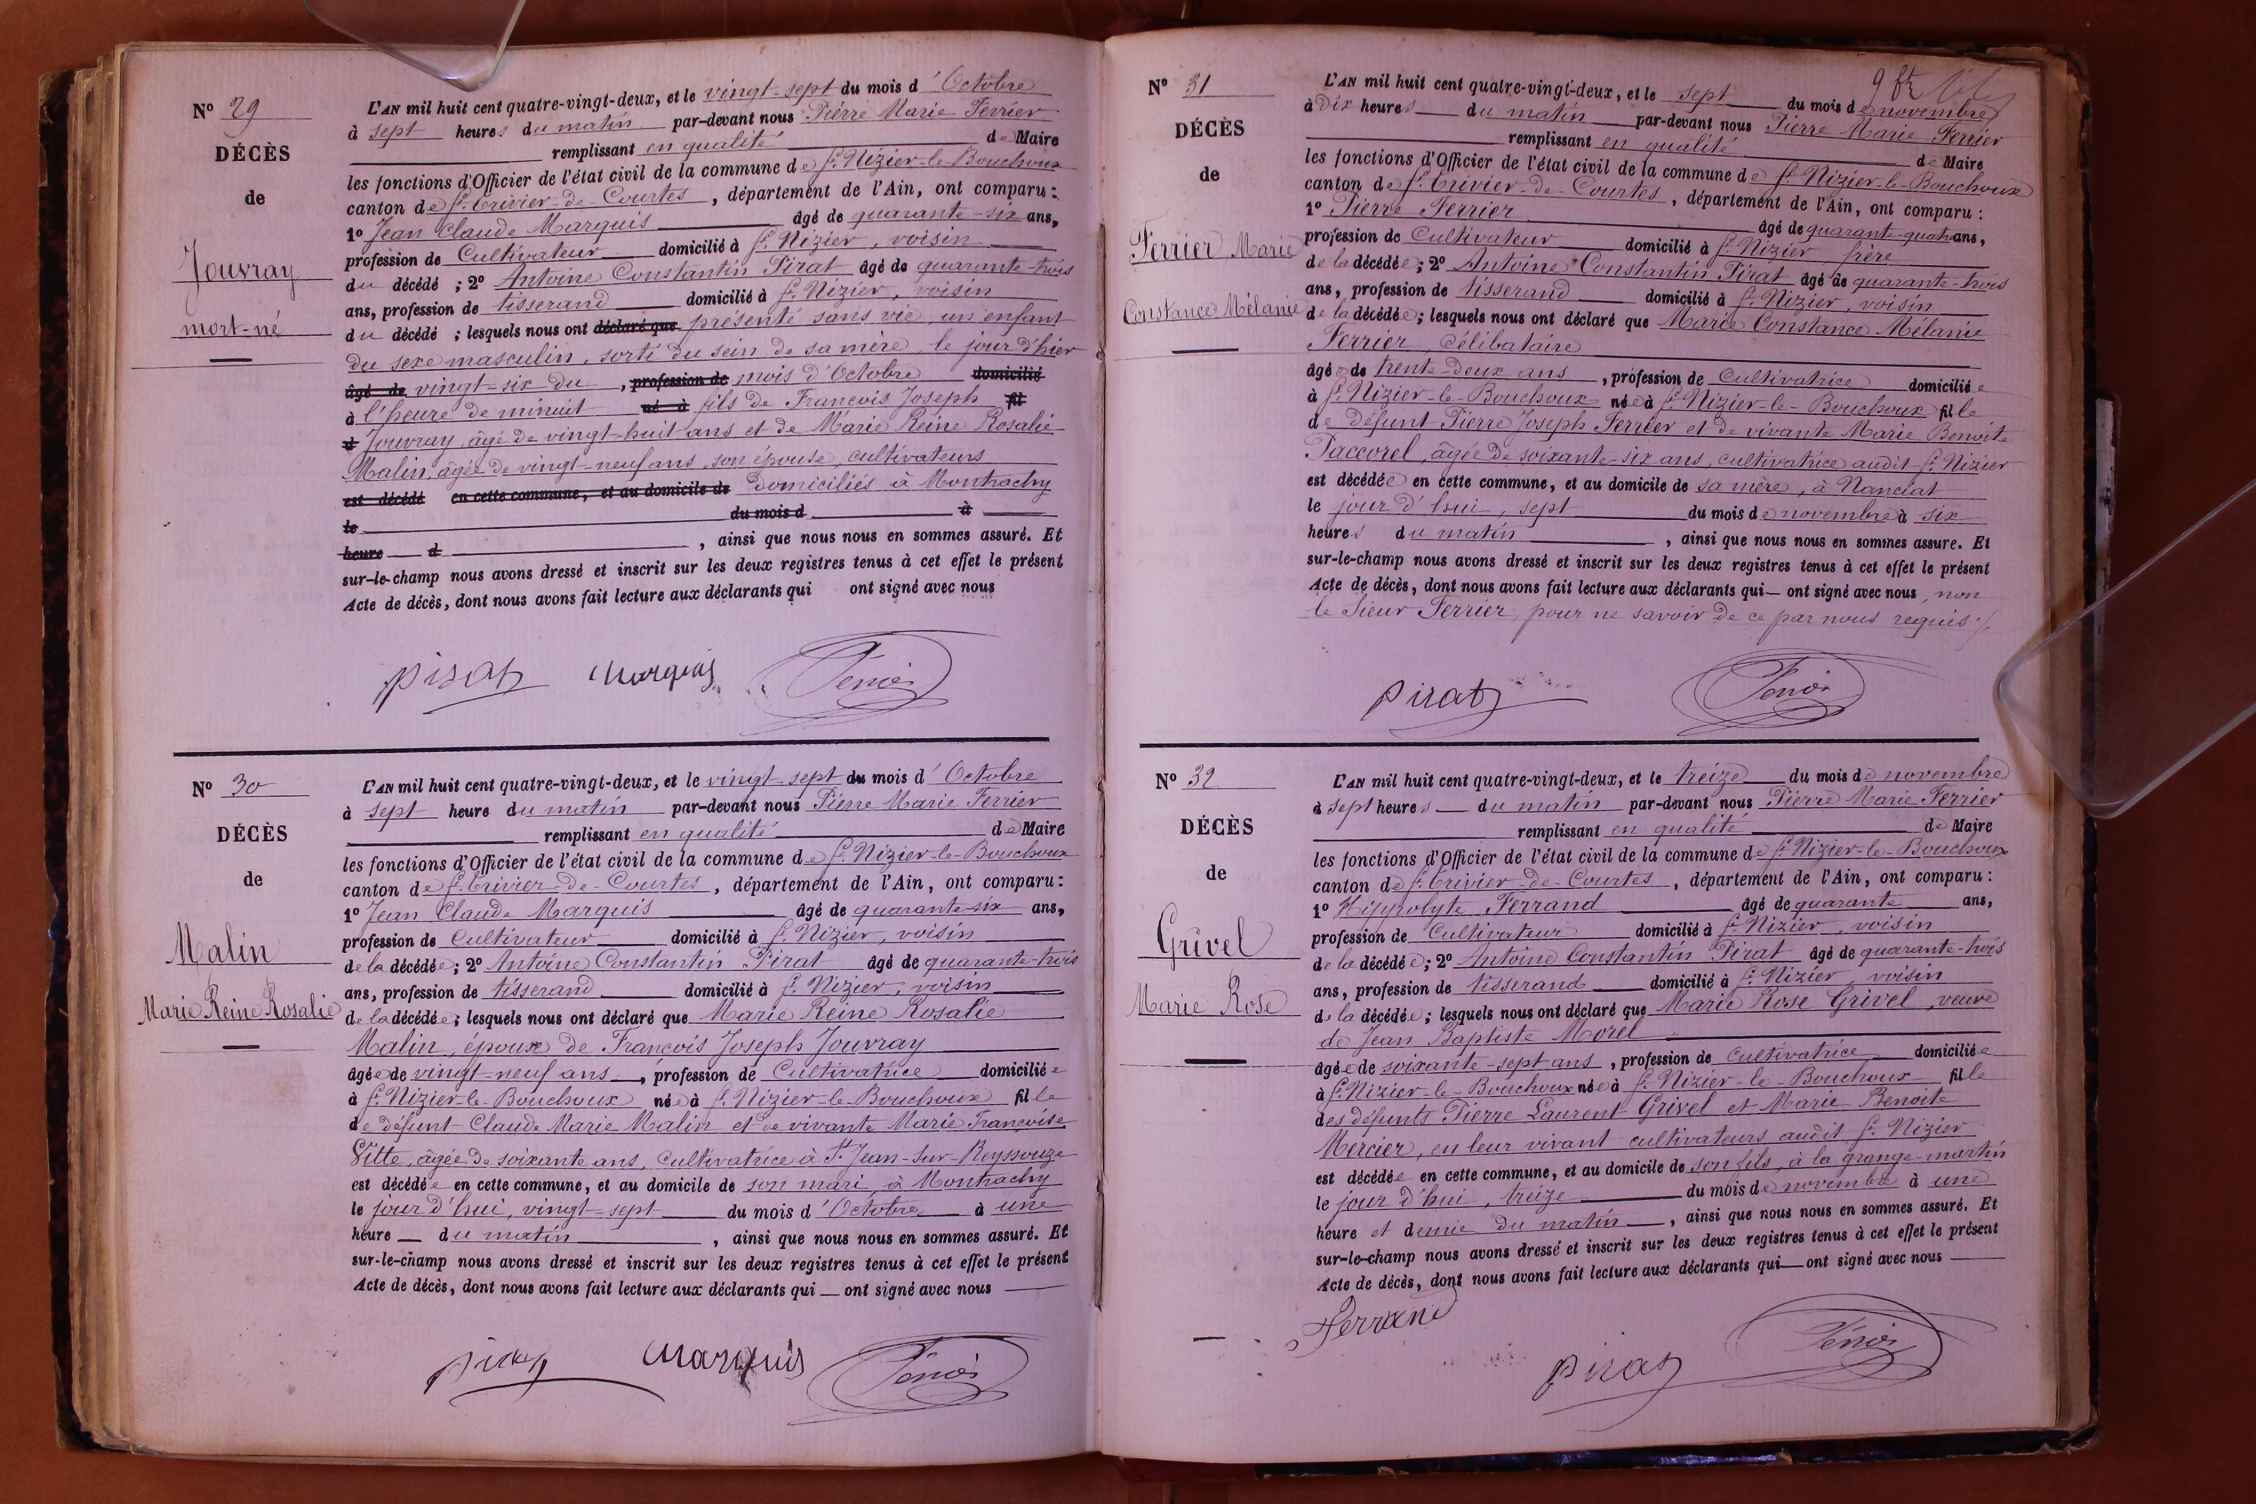 Nº 29
DÉCÈS
de
Jouvray
mort-né
L'AN mil huit cent quatre-vingt-deux, et le vingt-sept du mois d'Octobre
à sept heures du matin par-devant nous Pierre Marie Ferrier
remplissant en qualité de Maire
les fonctions d'Officier de l'état civil de la commune de St Nizier-le-Bouchoux
canton de St Trivier-de-Courtes, département de l'Ain, ont comparu :
1º Jean Claude Marquis âgé de quarante-six ans,
profession de Cultivateur domicilié à St Nizier, voisin
du décédé ; 2º Antoine Constantin Pirat âgé de quarante-trois
ans, profession de tisserand domicilié à St Nizier, voisin
du décédé ; lesquels nous ont déclaré que présenté sans vie un enfant
du sexe masculin, sorti du sein de sa mère le jour d'hier
âgé de vingt-six du, profession de mois d'Octobre domicilié
à l'heure de minuit né à fils de François Joseph fil
d Jouvray, âgé de vingt-huit ans et de Marie Reine Rosalie
Malin, âgée de vingt-neuf ans, son épouse, cultivateurs
est décédé en cette commune, et au domicile de domiciliés à Montrachy
le du mois d à
heure d , ainsi que nous nous en sommes assuré. Et
sur-le-champ nous avons dressé et inscrit sur les deux registres tenus à cet effet le présent
Acte de décès, dont nous avons fait lecture aux déclarants qui ont signé avec nous
Pirat Marquis Ferrier
Nº 30
DÉCÈS
de
Malin
Marie Reine Rosalie
L'AN mil huit cent quatre-vingt-deux, et le vingt-sept du mois d'Octobre
à sept heure du matin par-devant nous Pierre Marie Ferrier
remplissant en qualité de Maire
les fonctions d'Officier de l'état civil de la commune de St Nizier-le-Bouchoux
canton de St Trivier-de-Courtes, département de l'Ain, ont comparu :
1º Jean Claude Marquis âgé de quarante-six ans,
profession de Cultivateur domicilié à St Nizier, voisin
de la décédée ; 2º Antoine Constantin Pirat âgé de quarante-trois
ans, profession de tisserand domicilié à St Nizier, voisin
de la décédée ; lesquels nous ont déclaré que Marie Reine Rosalie
Malin, époux de François Joseph Jouvray
âgée de vingt-neuf ans, profession de Cultivatrice domiciliée
à St Nizier-le-Bouchoux née à St Nizier-le-Bouchoux fille
de défunt Claude Marie Malin et de vivante Marie Françoise
Vitte, âgée de soixante ans, Cultivatrice à St Jean-sur-Reyssouze
est décédée en cette commune, et au domicile de son mari à Montrachy
le jour d'hui, vingt-sept du mois d'Octobre à une
heure du matin, ainsi que nous nous en sommes assuré. Et
sur-le-champ nous avons dressé et inscrit sur les deux registres tenus à cet effet le présent
Acte de décès, dont nous avons fait lecture aux déclarants qui ont signé avec nous
Pirat Marquis Ferrier
Nº 31
DÉCÈS
de
Ferrier Marie
Constance Mélanie
L'AN mil huit cent quatre-vingt-deux, et le sept du mois de novembre
à Dix heures du matin par-devant nous Pierre Marie Ferrier
remplissant en qualité de Maire
les fonctions d'Officier de l'état civil de la commune de St Nizier-le-Bouchoux
canton de St Trivier-de-Courtes, département de l'Ain, ont comparu :
1º Pierre Ferrier âgé de quarante-quatre ans,
profession de Cultivateur domicilié à St Nizier frère
de la décédée ; 2º Antoine Constantin Pirat âgé de quarante-trois
ans, profession de tisserand domicilié à St Nizier, voisin
de la décédée ; lesquels nous ont déclaré que Marie Constance Mélanie
Ferrier, Célibataire
âgée de trente-deux ans, profession de Cultivatrice domiciliée
à St Nizier-le-Bouchoux née à St Nizier-le-Bouchoux fille
de défunt Pierre Joseph Ferrier et de vivante Marie Benoite
Paccorel, âgée de soixante-six ans, cultivatrice audit St Nizier
est décédée en cette commune, et au domicile de sa mère, à Nanciat
le jour d'hui, sept du mois de novembre à six
heures du matin, ainsi que nous nous en sommes assure. Et
sur-le-champ nous avons dressé et inscrit sur les deux registres tenus à cet effet le présent
Acte de décès, dont nous avons fait lecture aux déclarants qui ont signé avec nous, non
le Sieur Ferrier, pour ne savoir de ce par nous requis
Pirat Ferrier
Nº 32
DÉCÈS
de
Grivel
Marie Rose
L'AN mil huit cent quatre-vingt-deux, et le treize du mois de novembre
à sept heures du matin par-devant nous Pierre Marie Ferrier
remplissant en qualité de Maire
les fonctions d'Officier de l'état civil de la commune de St Nizier-le-Bouchoux
canton de St Trivier-de-Courtes, département de l'Ain, ont comparu :
1º Hippolyte Ferrand âgé de quarante ans,
profession de Cultivateur domicilié à St Nizier, voisin
de la décédée ; 2º Antoine Constantin Pirat âgé de quarante-trois
ans, profession de tisserand domicilié à St Nizier, voisin
de la décédée ; lesquels nous ont déclaré que Marie Rose Grivel, veuve
de Jean Baptiste Morel
âgée de soixante-sept ans, profession de Cultivatrice domiciliée
à St Nizier-le-Bouchoux née à St Nizier-le-Bouchoux fille
des défunts Pierre Laurent Grivel et Marie Benoite
Mercier, en leur vivant cultivateurs audit St Nizier
est décédée en cette commune, et au domicile de son fils, à la grange-martin
le jour d'hui, treize du mois de novembre à une
heure et demie du matin, ainsi que nous nous en sommes assuré. Et
sur-le-champ nous avons dressé et inscrit sur les deux registres tenus à cet effet le présent
Acte de décès, dont nous avons fait lecture aux déclarants qui ont signé avec nous
Ferrand
Pirat Ferrier